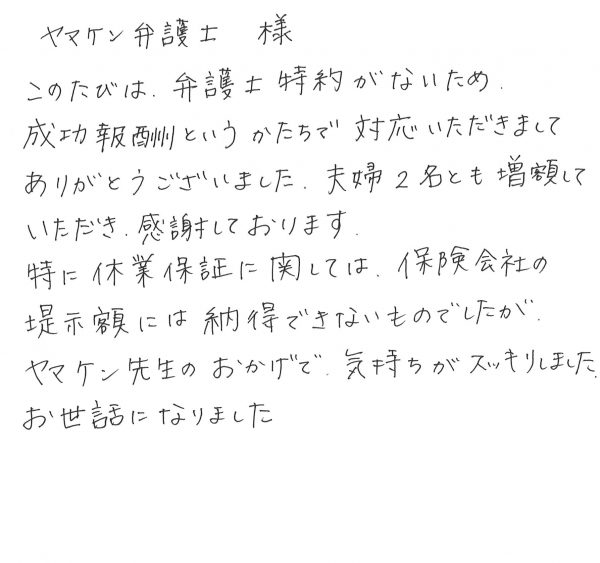 ヤマケン弁護士 様
このたびは、弁護士特約がないため、
成功報酬というかたちで対応いただきまして
ありがとうございました。夫婦2名とも増額して
いただき、感謝しております。
特に休業保証に関しては、保険会社の
堤示額には納得できないものでしたが、
ヤマケン先生のおかげで、気持ちがスッキリしました。
お世話になりました